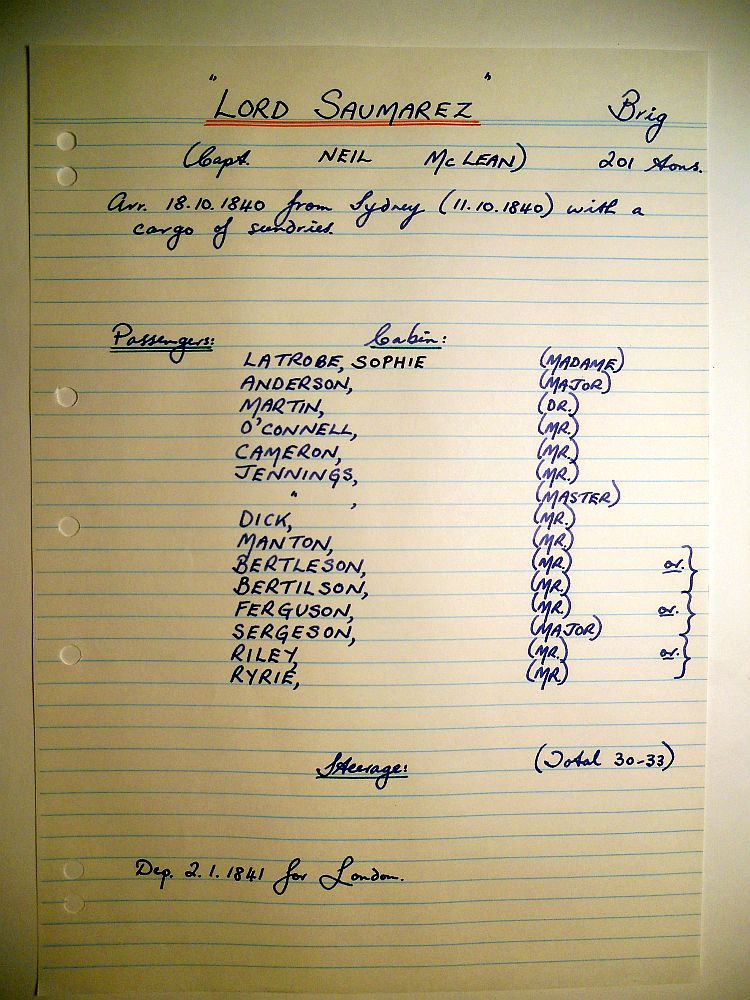 "LORD SAUMAREZ" Brig
(Capt. NEIL McLEAN) 201 tons.
Arr. 18.10.1840 from Sydney (11.10.1840) with a
cargo of sundries.
Passengers: Cabin:
LATROBE, SOPHIE (MADAME)
ANDERSON, (MAJOR)
MARTIN, (DR.)
O'CONNELL, (MR.)
CAMERON, (MR.)
JENNINGS, (MR.)
" , (MASTER)
DICK, (MR.)
MANTON, (MR.)
BERTLESON, (MR.) or. }
BERTILSON, (MR.)
FERGUSON, (MR.) or. }
SERGESON, (MAJOR)
RILEY, (MR.) or. }
RYRIE, (MR.)
Steerage: (Total 30-33)
Dep. 2.1.1841 for London.